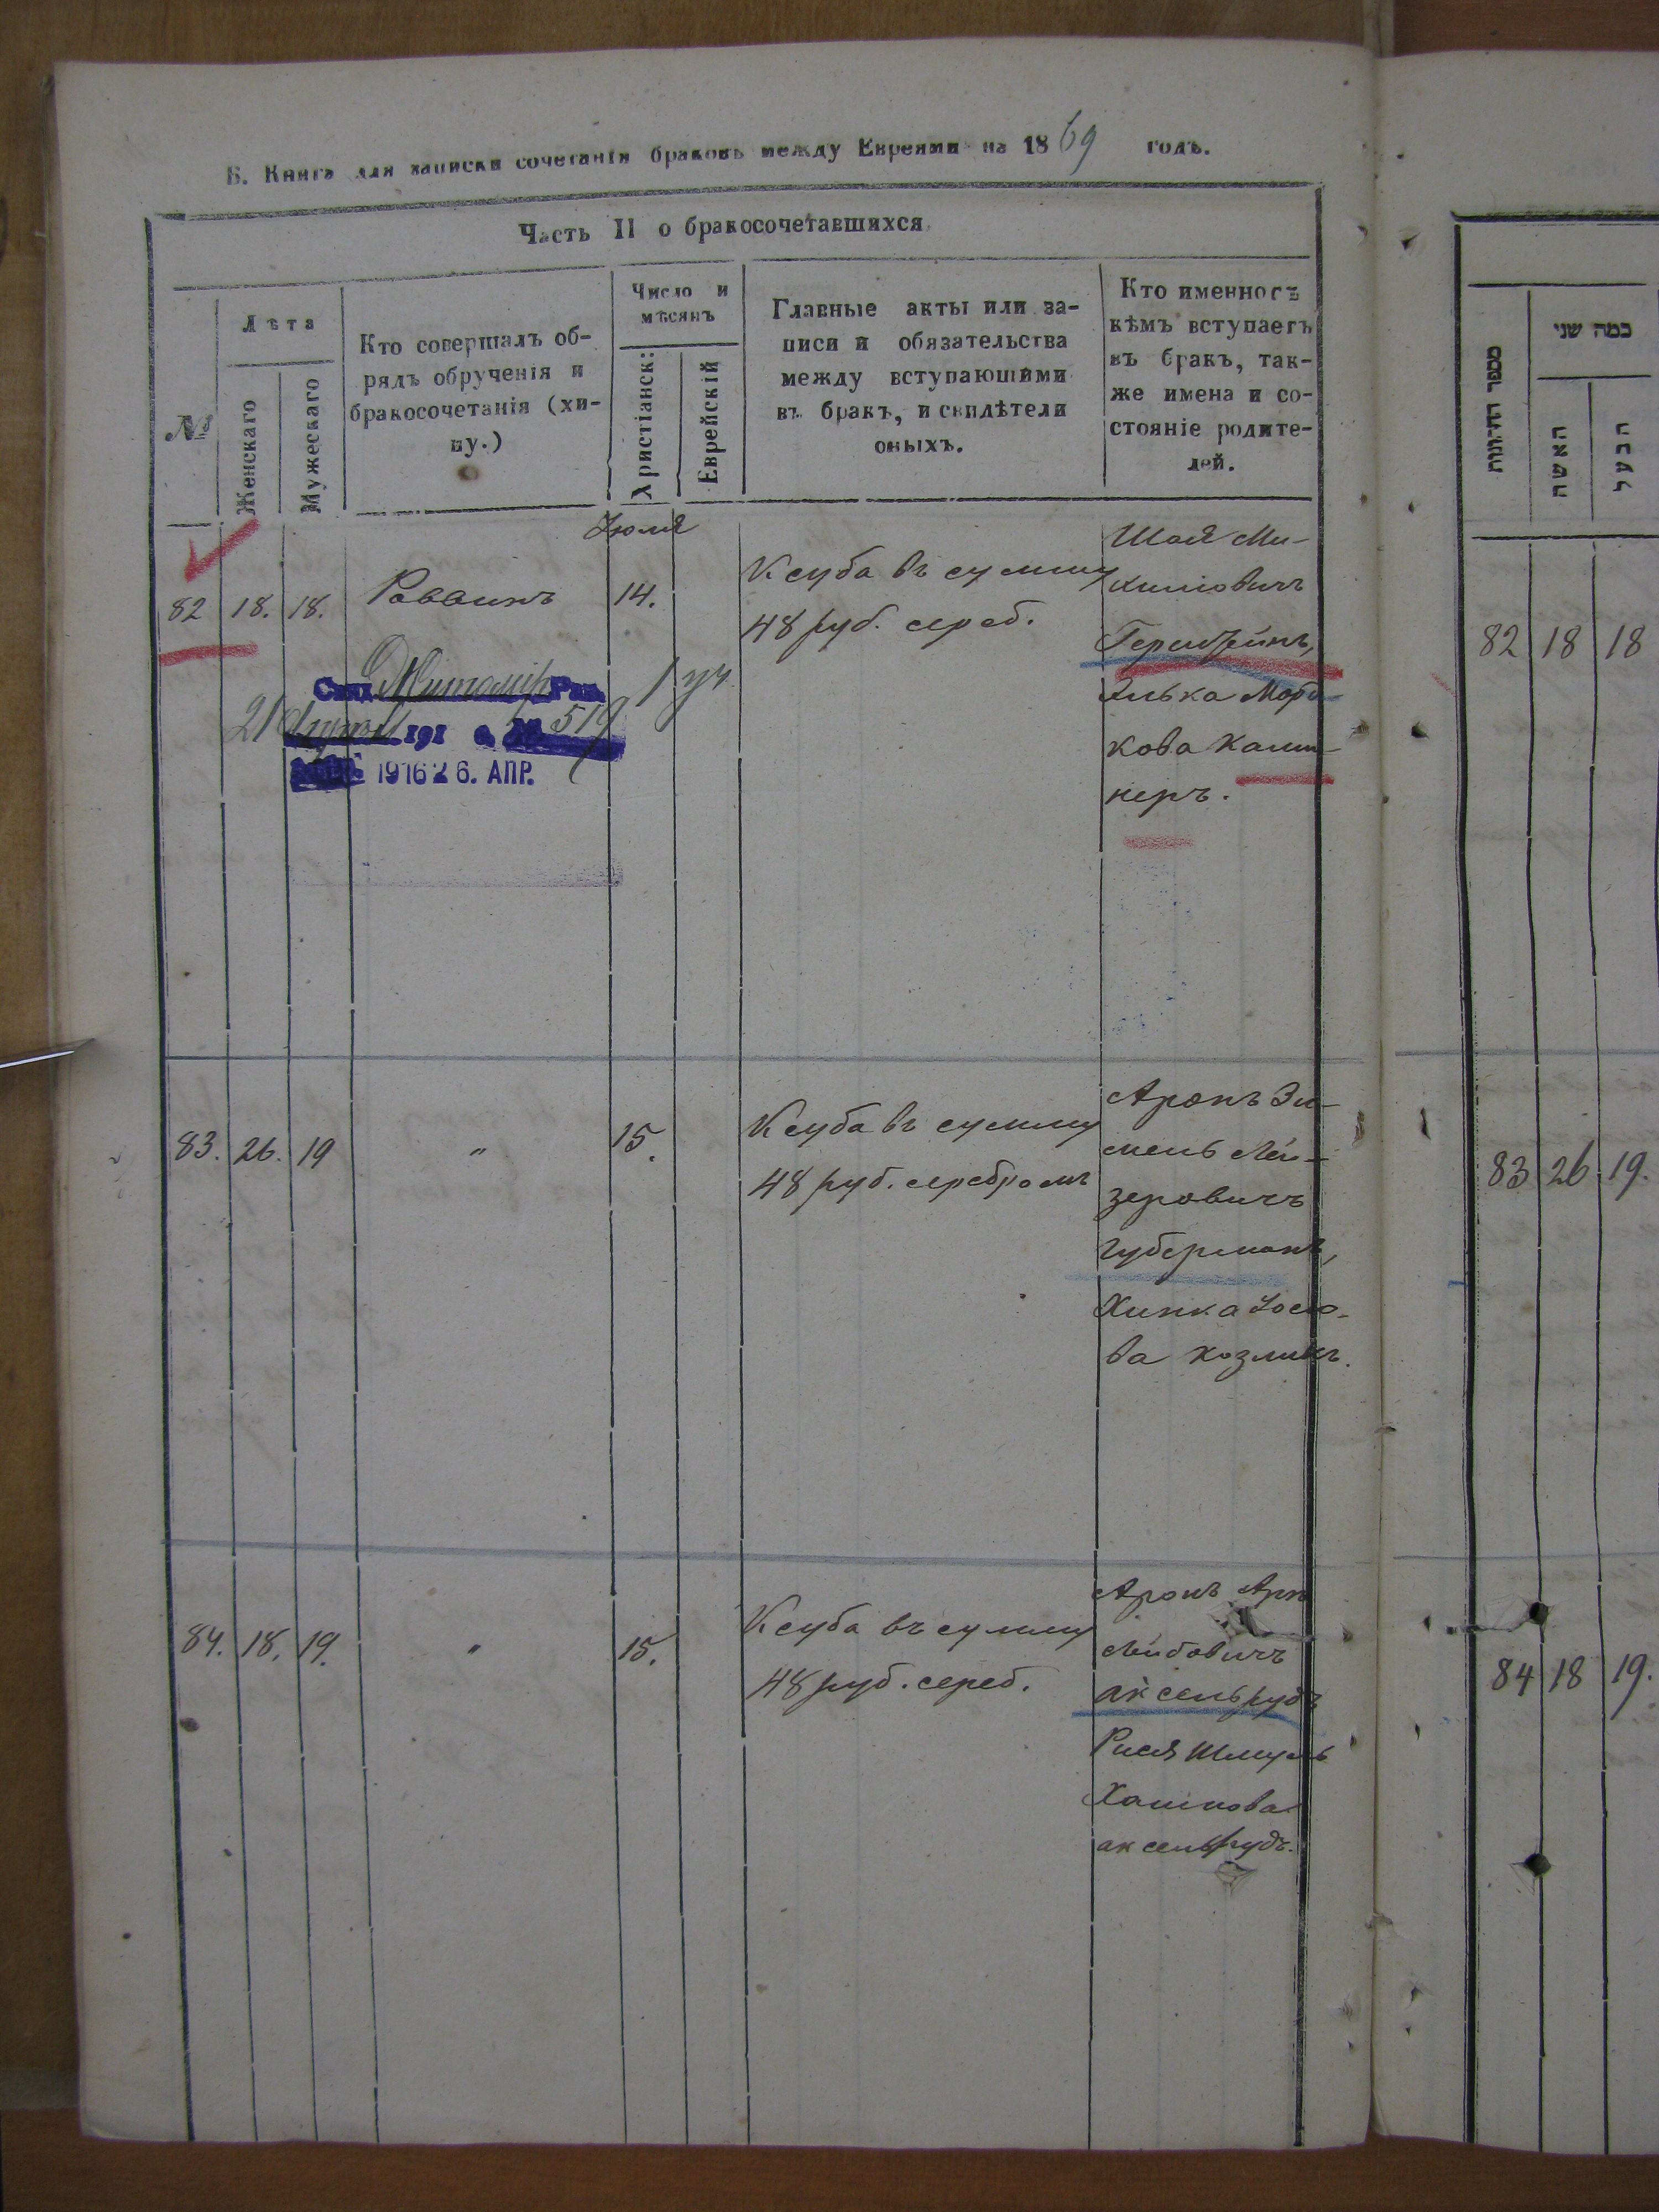 Б. Книга для записки сочетанія браковъ между Евреями на 1869 годъ.
Часть II о бракосочетавшихся
№
Лѣта
Женскаго
Мужескаго
Кто совершалъ об-
рядъ обрученія и
бракосочетанія (хи-
пу.)
Число и
мѣсяцъ
Христіанск:
Еврейскій
Главные акты или за-
писи и обязательства
между вступающими
въ бракъ, и свидѣтели
оныхъ.
Кто именно съ
кѣмъ вступаетъ
въ бракъ, так-
же имена и со-
стояніе родите-
лей.
Іюля
82 18. 18. Раввинъ 14.
Ксуба въ сумму
48 руб. сереб.
Шая Ми-
хилiовичъ
Герштейнъ,
кова Кашт-
неръ.
Житомір Рав.
21 191 № 519
1916 26. АПР.
1 уч
83. 26. 19 " 15.
Ксуба въ сумму
48 руб. серебромъ
Аронъ Зи-
мель Лей-
зеровичъ
Губерманъ,
Хинка Іосіо-
ва Козликъ.
84. 18. 19. " 15.
Ксуба въ сумму
48 руб. сереб.
Аронъ Арн
Лейбовичъ
аксельрудъ
Рися Шмуль
Хаимова
аксельрудъ.
מספר החתונות
כמה שני
האשה
הבעל
82 18 18
83 26 19.
84 18 19.